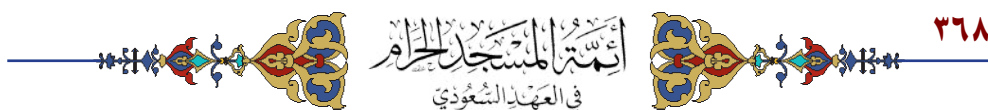 ٣٦٨
أئمة المسجد الحرام
في العهد السعودي